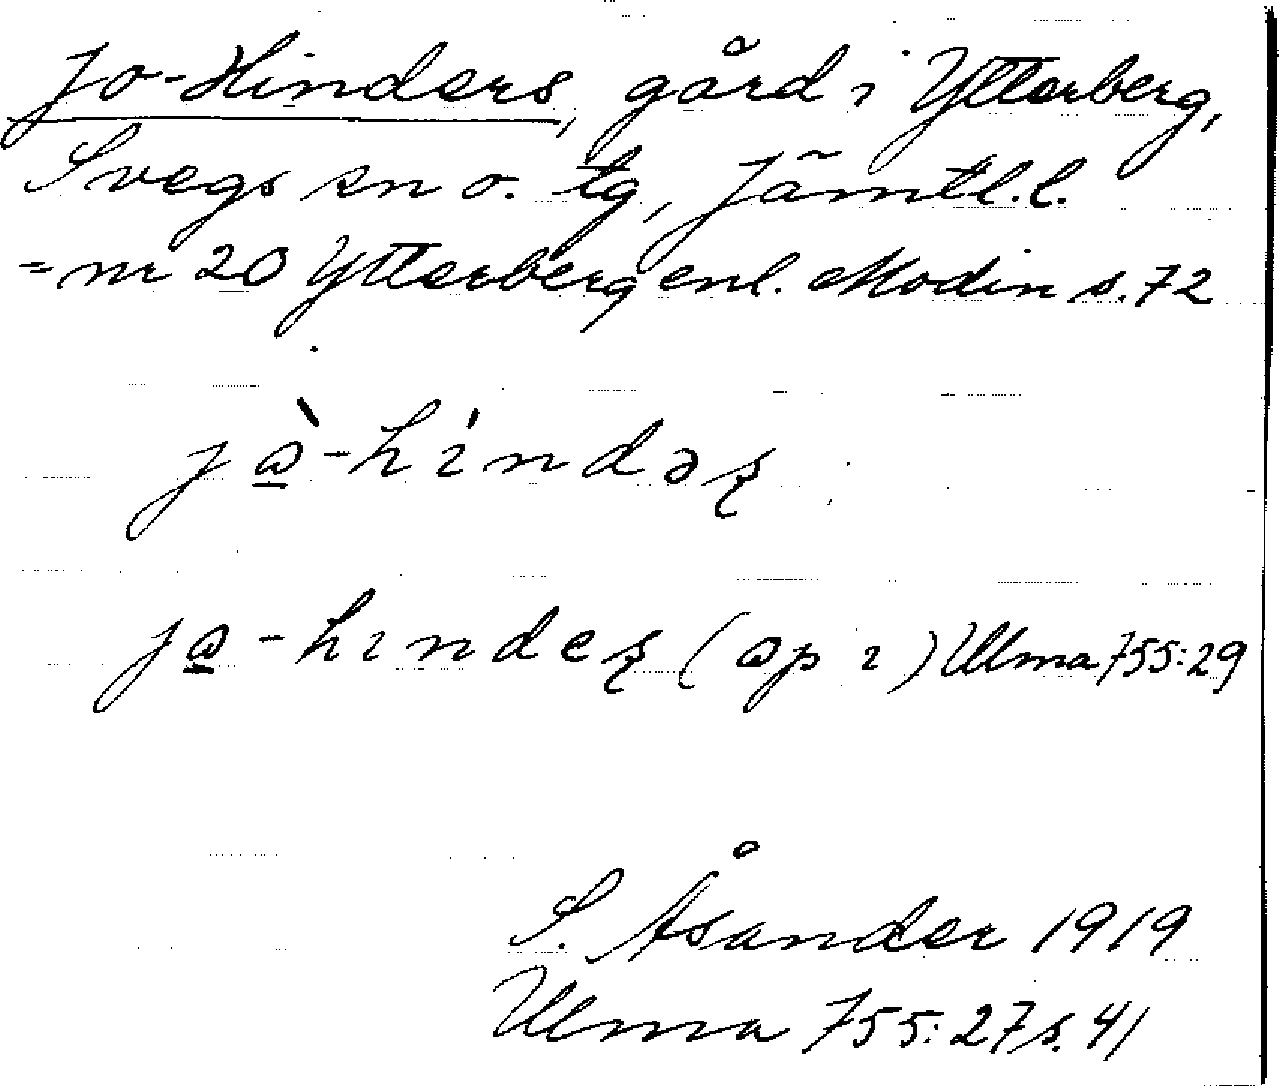 Jo-Hinders, gård i Ytterberg,
Svegs sn o. tg, Jämtl.l.
= nr 20 Ytterberg enl. Modin s. 72
jɷ̲̀-hı́ndəʂ
jɷ̲-hındeʂ (ɷp ı) Ulma 755:29
S. Åsander 1919
Ulma 755:27 s. 41